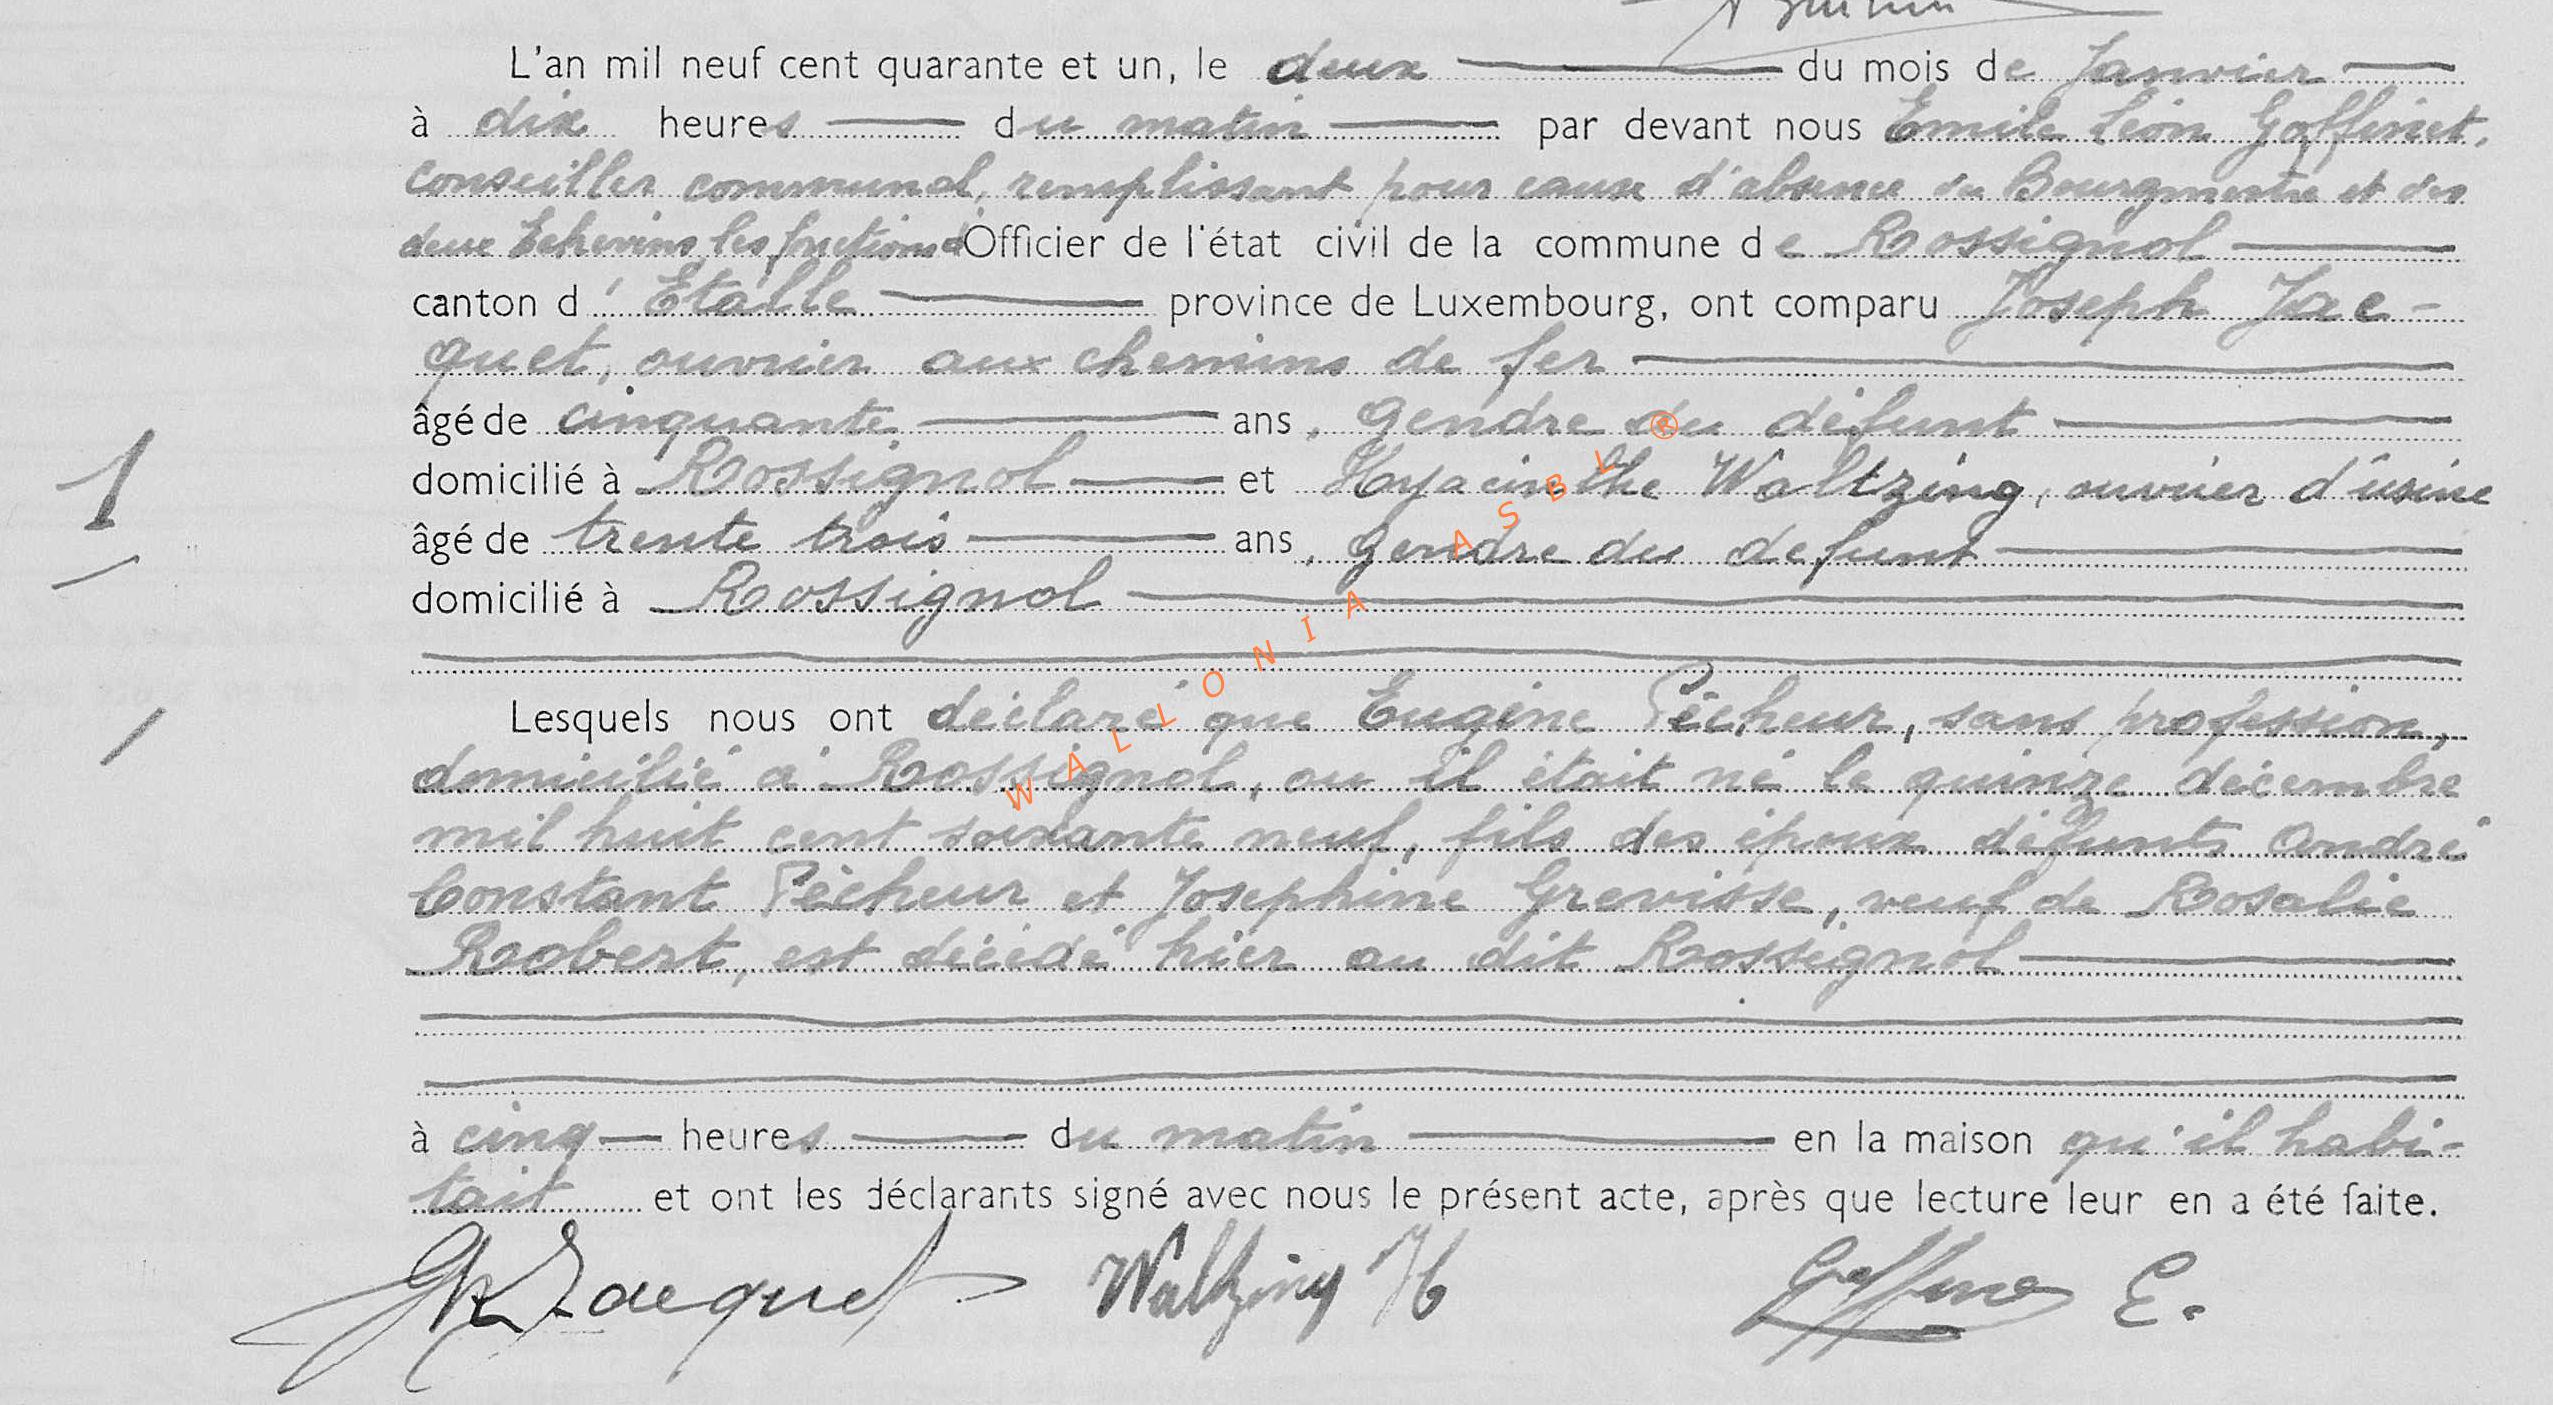 L'an mil neuf cent quarante et un, le deux du mois de Janvier
à dix heures du matin par devant nous Emile Léon Goffinet,
conseiller communal, remplissant pour cause d'absence du Bourgmestre et des
deux Echevins les fonctions d'Officier de l'état civil de la commune de Rossignol
canton d'Etalle province de Luxembourg, ont comparu Joseph Jac-
quet, ouvrier aux chemins de fer
âgé de cinquante ans, gendre du défunt
domicilié à Rossignol et Hyacinthe Waltzing, ouvrier d'usine
âgé de trente trois ans, gendre du defunt
domicilié à Rossignol
1
Lesquels nous ont déclaré que Eugène Pêcheur, sans profession,
domicilié à Rossignol, ou il était né le quinze décembre
mil huit cent soixante neuf, fils des époux défunts André
Constant Pêcheur et Josephine Grevisse, veuf de Rosalie
Robert, est décédé hier au dit Rossignol
à cinq heures du matin en la maison qu'il habi-
tait et ont les déclarants signé avec nous le présent acte, après que lecture leur en a été faite.
Jacquet Waltzing H Goffinet E.
WALLONIA ASBL ®